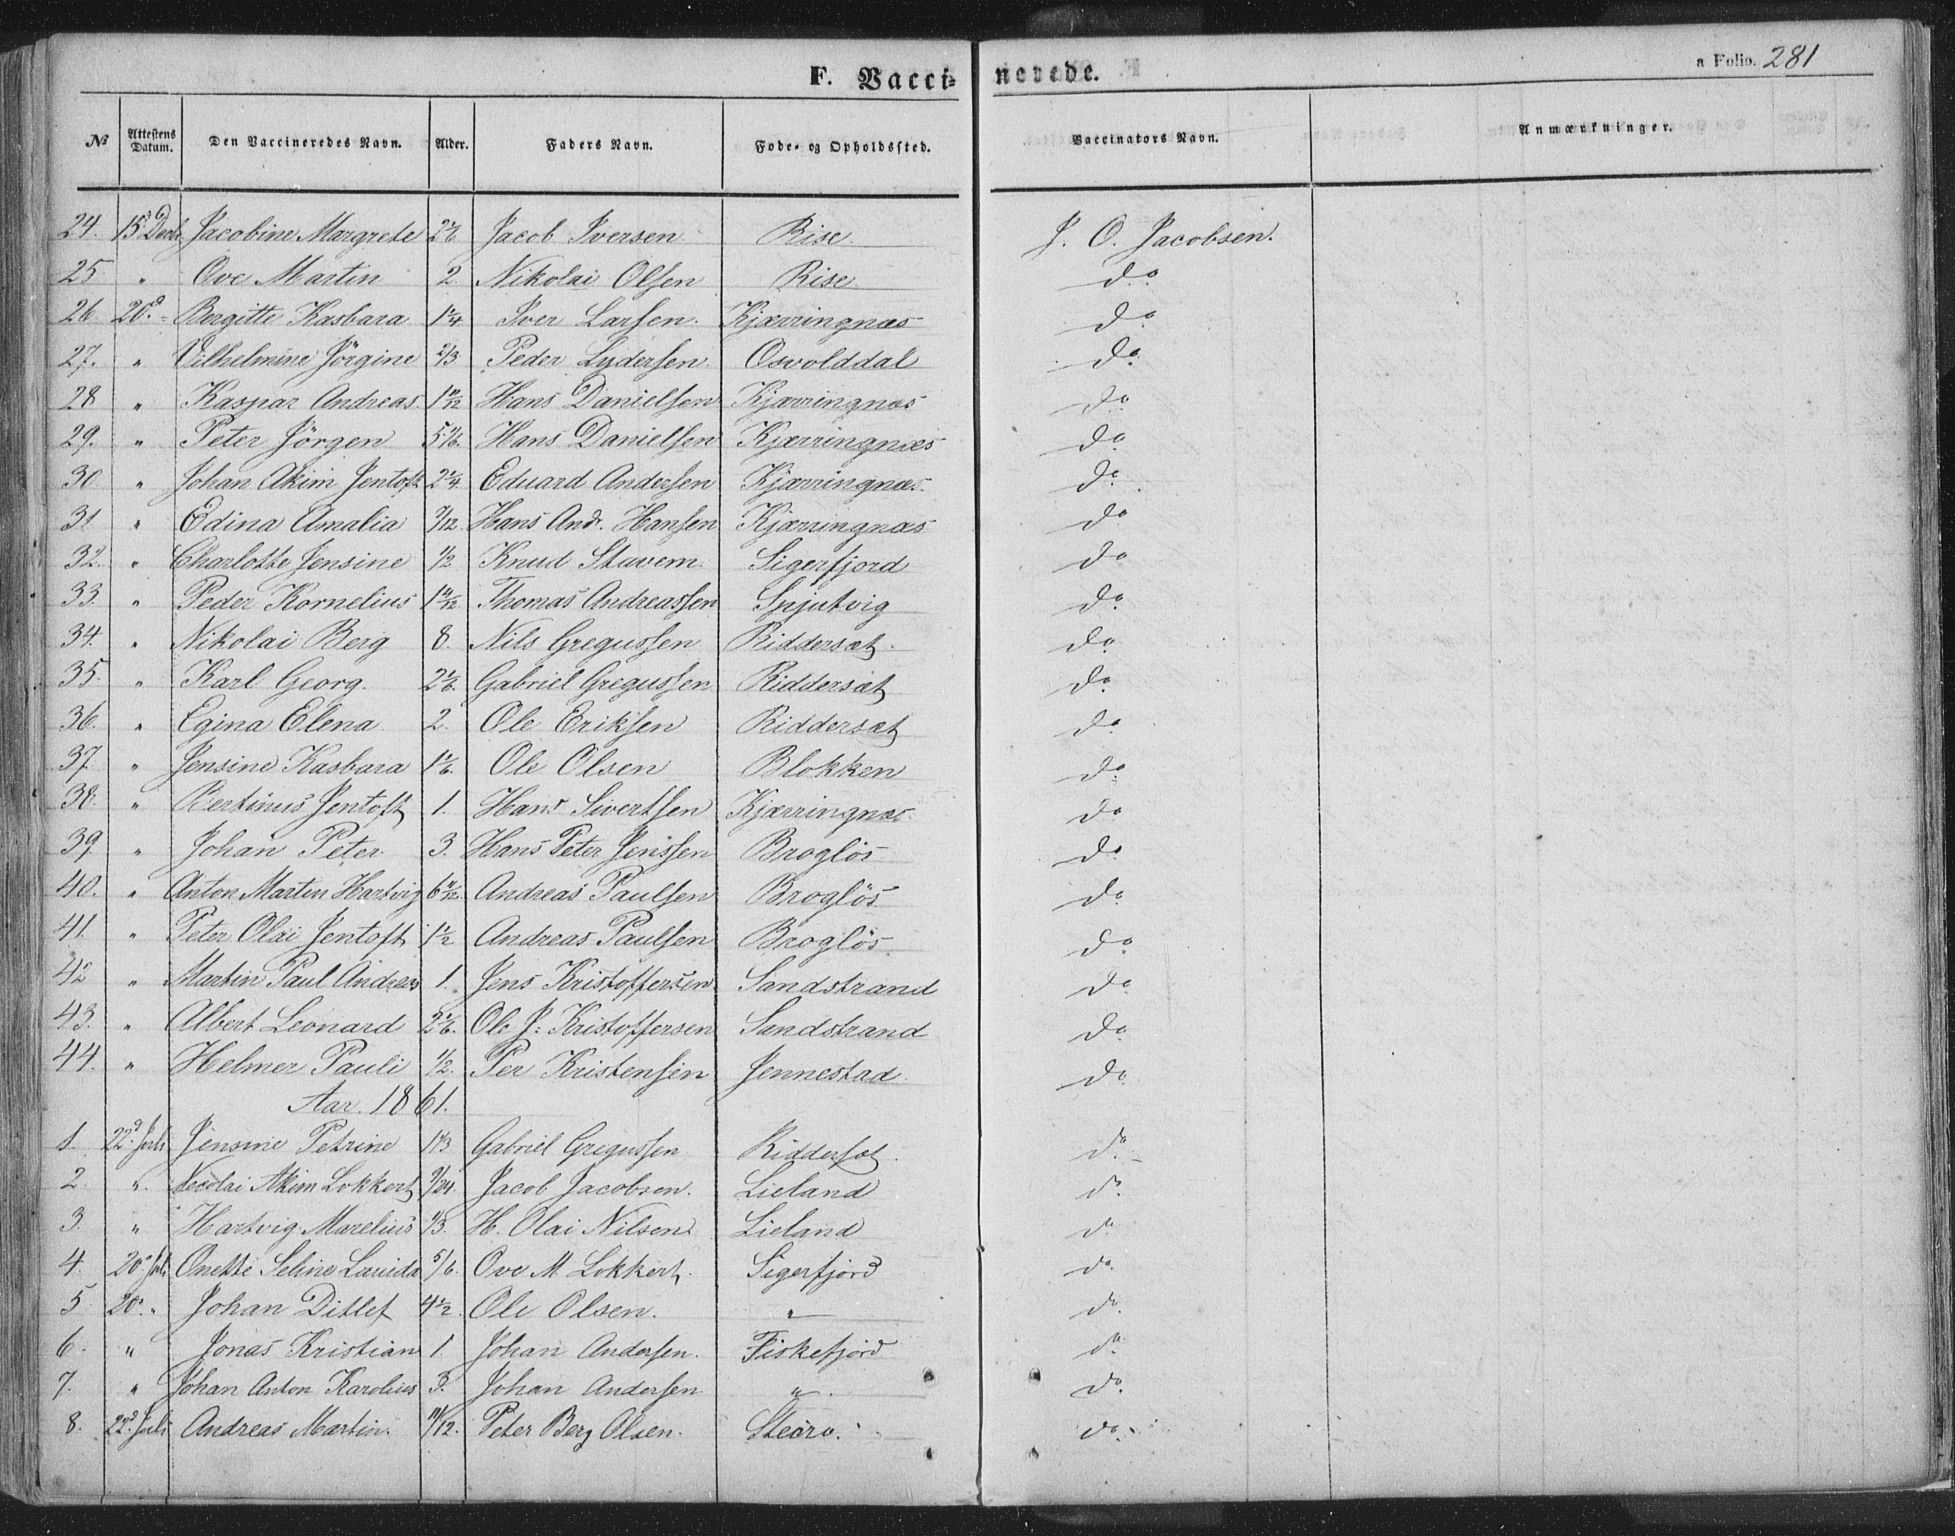 F. Vacci- nerede. a Folio. 281
No Attestens Datum. Den Vaccineredes Navn. Alder. Faders Navn. Føde- og Opholdssted. Vaccinators Navn. Anmærkninger.
24. 15d Decbr Jacobine Margrete 2 1/6 Jacob Iversen Rise. J. O. Jacobsen.
25 " Ove Martin 2 Nikolai Olsen Rise. do
26 20d - Bergitte Kasbara 1 1/4 Iver Larsen. Kjærringnæs do
27. " Vilhelmine Jörgine 2/3 Peder Lydersen. Osvolddal do
28 " Kaspar Andreas. Hans Danielsen Kjærringnæs do
29. " Peter Jörgen 5 1/6. Hans Danielsen Kjærringnæs do
30 " Johan Akim Jentoft 2 1/4 Eduard Andersen Kjærringnæs. do
31 " Edina Amalia 7/12 Hans Andr. Hansen Kjærringnæs do
32. " Charlotte Jensine 1/2 Knud Stavem. Sigerfjord do
33. " Peder Kornelius Thomas Andreassen Spjutvig do
34. " Nikolai Berg 8. Nils Gregussen Riddersæt. do
35. " Karl Georg. 2 1/6. Gabriel Gregussen Riddersæt do
36. " Egina Elena 2. Ole Eriksen Riddersæt do
37. " Jensine Kasbara 1 1/6. Ole Olsen Blokken do
38. " Bertinus Jentoft 1. Hans Sivertsen Kjærringnæs. do
39. " Johan Peter 3. Hans Peter Jenssen Broglös do
40. " Anton Martin Hartvig Andreas Paulsen Broglös do
41. " Peter Olai Jentoft 1 1/2 Andreas Paulsen Broglös. do
42 " Martin Paul Andreas 1. Jens Kristoffersen Sandstrand do
43. " Albert Leonard 2 1/6. Ole J: Kristoffersen Sandstrand do
44. " Helmer Pauli 1/2. Per Kristensen Jennestad. do
Aar. 1861.
1. 22d Juli Jensine Petrine 1 1/3 Gabriel Gregussen Riddersæt. do
2. ". Nicolai Akim Lokkert 9/24. Jacob Jacobsen. Lieland do
3. " Hartvig Marelius 1/3. H. Olai Nilsen. Lieland do
4. 20d Juli Onette Seline Lauida 5/6. Ove M Lokkert. Sigerfjord do
5 20d " Johan Ditlef 4 1/2. Ole Olsen. " do
6. " Jonas Kristian 1. Johan Andersen. Fiskefjord do
7. " Johan Anton Karolius 3. Johan Andersen " do
8. 22d Juli Andreas Martin. 11/12. Peter Berg Olsen. do